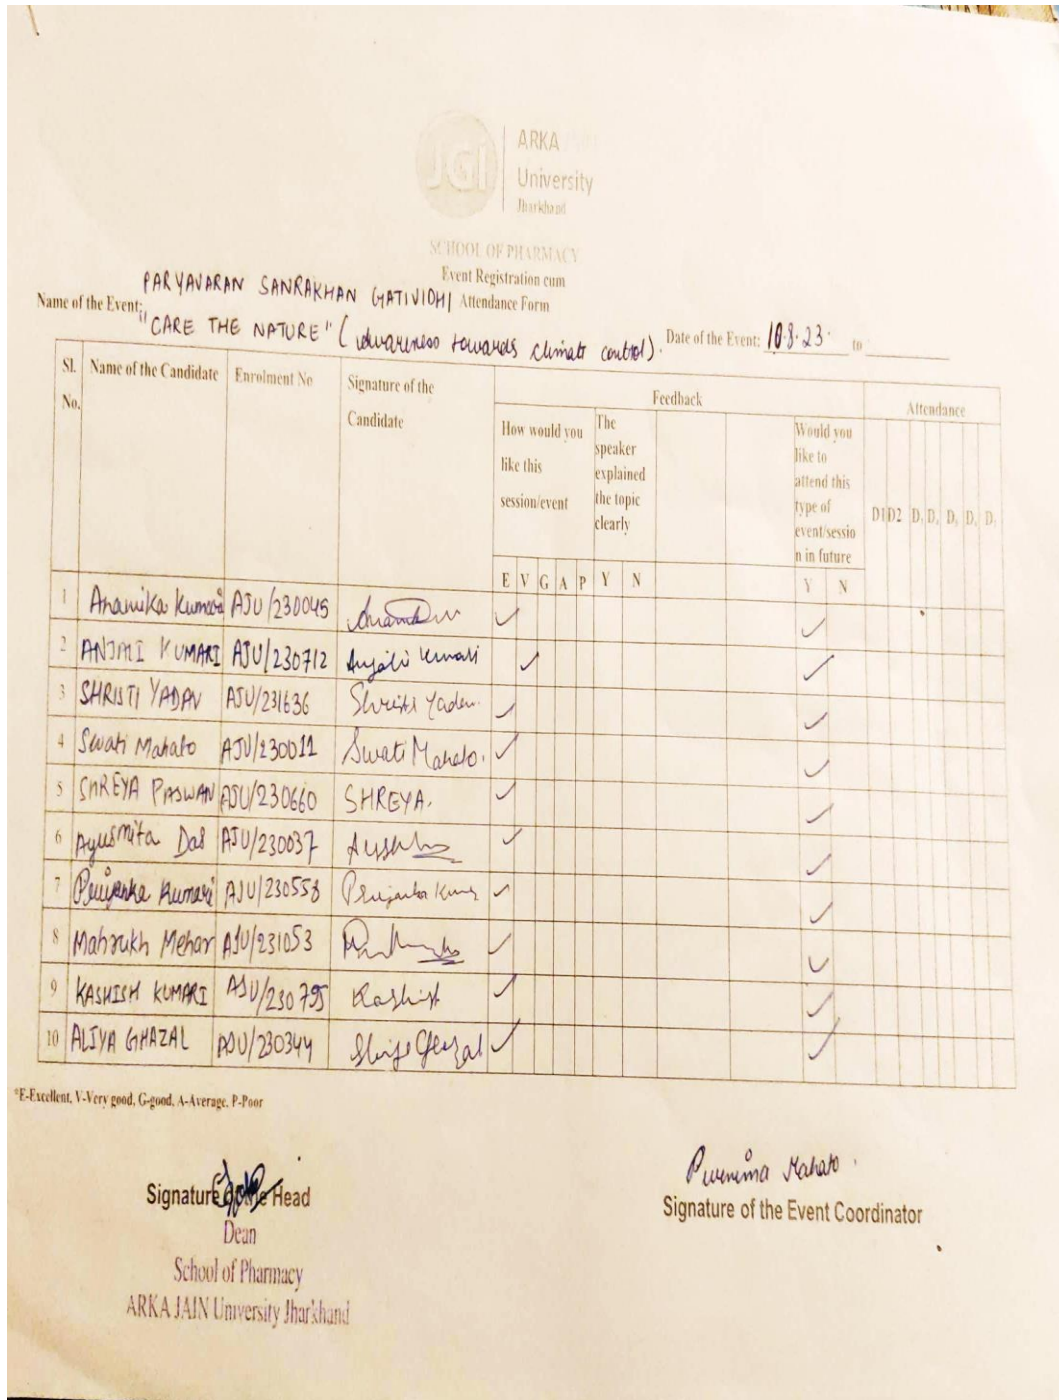 JGI
ARKA
University
Jharkhand
SCHOOL OF PHARMACY
Event Registration cum
Attendance Form
Name of the Event: PARYAVARAN SANRAKHAN GATIVIDHI
"CARE THE NATURE" (Awareness towards climate control).
Date of the Event: 10.8.23 to
Sl. No. Name of the Candidate Enrolment No Signature of the Candidate Feedback Attendance
How would you like this session/event The speaker explained the topic clearly Would you like to attend this type of event/sessio n in future D1 D2 D, D, D, D, D,
E V G A P Y N Y N
1 Anamika Kumari AJU/230045 ✓ ✓
2 ANJALI KUMARI AJU/230712 Anjali Kumari ✓ ✓
3 SHRISTI YADAV AJU/231636 Shristi Yadav. ✓ ✓
4 Swati Mahato AJU/230011 Swati Mahato. ✓ ✓
5 SHREYA PASWAN AJU/230660 SHREYA. ✓ ✓
6 Ayusmita Das AJU/230037 ✓ ✓
7 Priyanka Kumari AJU/230558 Priyanka Kumari ✓ ✓
8 Mahrukh Mehar AJU/231053 ✓ ✓
9 KASHISH KUMARI AJU/230795 Kashish ✓ ✓
10 ALIYA GHAZAL AJU/230344 Aliya Ghazal ✓ ✓
*E-Excellent, V-Very good, G-good, A-Average, P-Poor
Purnima Mahato.
Signature of the Head
Signature of the Event Coordinator
Dean
School of Pharmacy
ARKA JAIN University Jharkhand